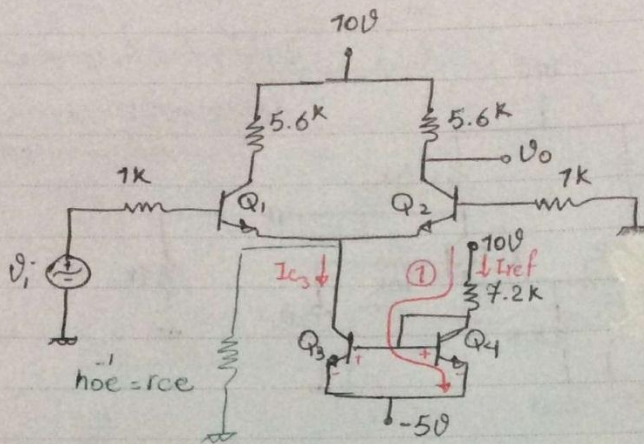 10v
5.6K
5.6K
vo
1K
Q1
Q2
1K
vi
10v
Ic3
①
Iref
7.2K
Q3
Q4
+
+
-
-
hoe⁻¹ = rce
-5v